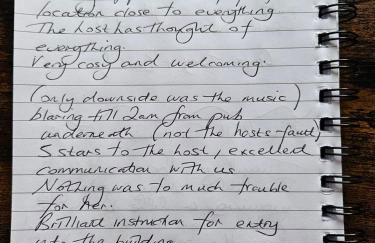 location close to everything
The host has thought of
everything.
Very cosy and welcoming.
(only downside was the music)
blaring till 2am from pub
underneath (not the hosts fault)
5 stars to the host, excelled
communication with us
Nothing was to much trouble
for her.
Brilliant instruction for entry
into the building